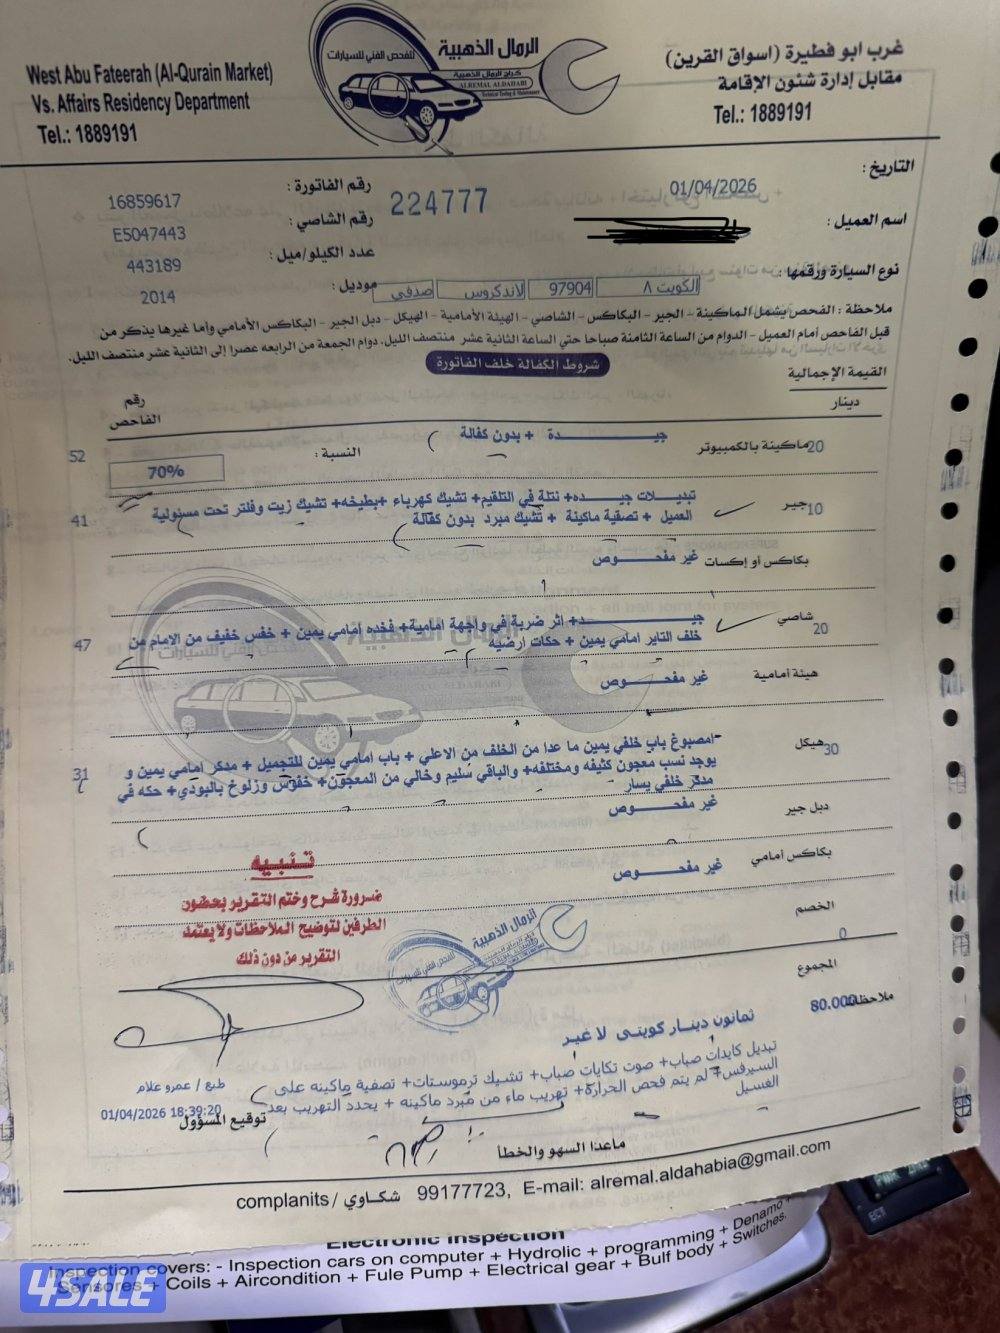 West Abu Fateerah (Al-Qurain Market)
Vs. Affairs Residency Department
Tel.: 1889191
الرمال الذهبية
للفحص الفني للسيارات
كراج الرمال الذهبية
ALREMAL ALDAHABI
Technical Testing & Maintenance
غرب ابو فطيرة (اسواق القرين)
مقابل إدارة شئون الإقامة
Tel.: 1889191
التاريخ : 01/04/2026
رقم الفاتورة : 16859617
224777
اسم العميل :
رقم الشاصي : E5047443
عدد الكيلو/ميل : 443189
نوع السيارة ورقمها : الكويت ٨ 97904 لاندكروس صدفي
موديل : 2014
ملاحظة : الفحص يشمل الماكينة - الجير - البكاكس - الشاصي - الهيئة الأمامية - الهيكل - دبل الجير - البكاكس الأمامي وأما غيرها يذكر من
قبل الفاحص أمام العميل - الدوام من الساعة الثامنة صباحا حتي الساعة الثانية عشر منتصف الليل. دوام الجمعة من الرابعه عصرا إلى الثانية عشر منتصف الليل.
شروط الكفالة خلف الفاتورة
القيمة الإجمالية
دينار
رقم
الفاحص
20 ماكينة بالكمبيوتر
جيــــدة + بدون كفالة
النسبة :
70%
52
10 جير
تبديلات جيــــده+ نتلة في التلقيم+ تشيك كهرباء +بطيخه+ تشيك زيت وفلتر تحت مسئولية
العميل + تصفية ماكينة + تشيك مبرد بدون كفالة
41
بكاكس أو إكسات
غير مفحــــوص
20 شاصي
جيــــد+ اثر ضربة في واجهة امامية+ فخده امامي يمين + خفس خفيف من الامام من
خلف التاير امامي يمين + حكات ارضيه
47
هيئة أمامية
غير مفحــــوص
30 هيكل
امصبوغ باب خلفي يمين ما عدا من الخلف من الاعلي + باب امامي يمين للتجميل + مدكر امامي يمين و
يوجد نسب معجون كثيفه ومختلفه+ والباقي سليم وخالي من المعجون+ خفوس وزلوخ بالبودي+ حكه في
مدكر خلفي يسار
31
دبل جير
غير مفحــــوص
بكاكس أمامي
غير مفحــــوص
تنبيه
ضرورة شرح وختم التقرير بحضور
الطرفين لتوضيح الملاحظات ولا يعتمد
التقرير من دون ذلك
الرمال الذهبية
للفحص الفني للسيارات
الخصم
0
المجموع
80.000
ملاحظة
ثمانون دينار كويتى لا غير
تبديل كايدات صباب+ صوت تكايات صباب+ تشيك ترموستات+ تصفية ماكينه على
السيرفس+ لم يتم فحص الحرارة+ تهريب ماء من مبرد ماكينه + يحدد التهريب بعد
الغسيل
طبع / عمرو علام
01/04/2026 18:39:20
توقيع المسؤول
ماعدا السهو والخطأ
complanits / شكاوي 99177723, E-mail: alremal.aldahabia@gmail.com
Electronic Inspection
Inspection covers: - Inspection cars on computer + Hydrolic + programming + Denamo +
Sensores + Coils + Aircondition + Fule Pump + Electrical gear + Bulf body + Switches.
4SALE